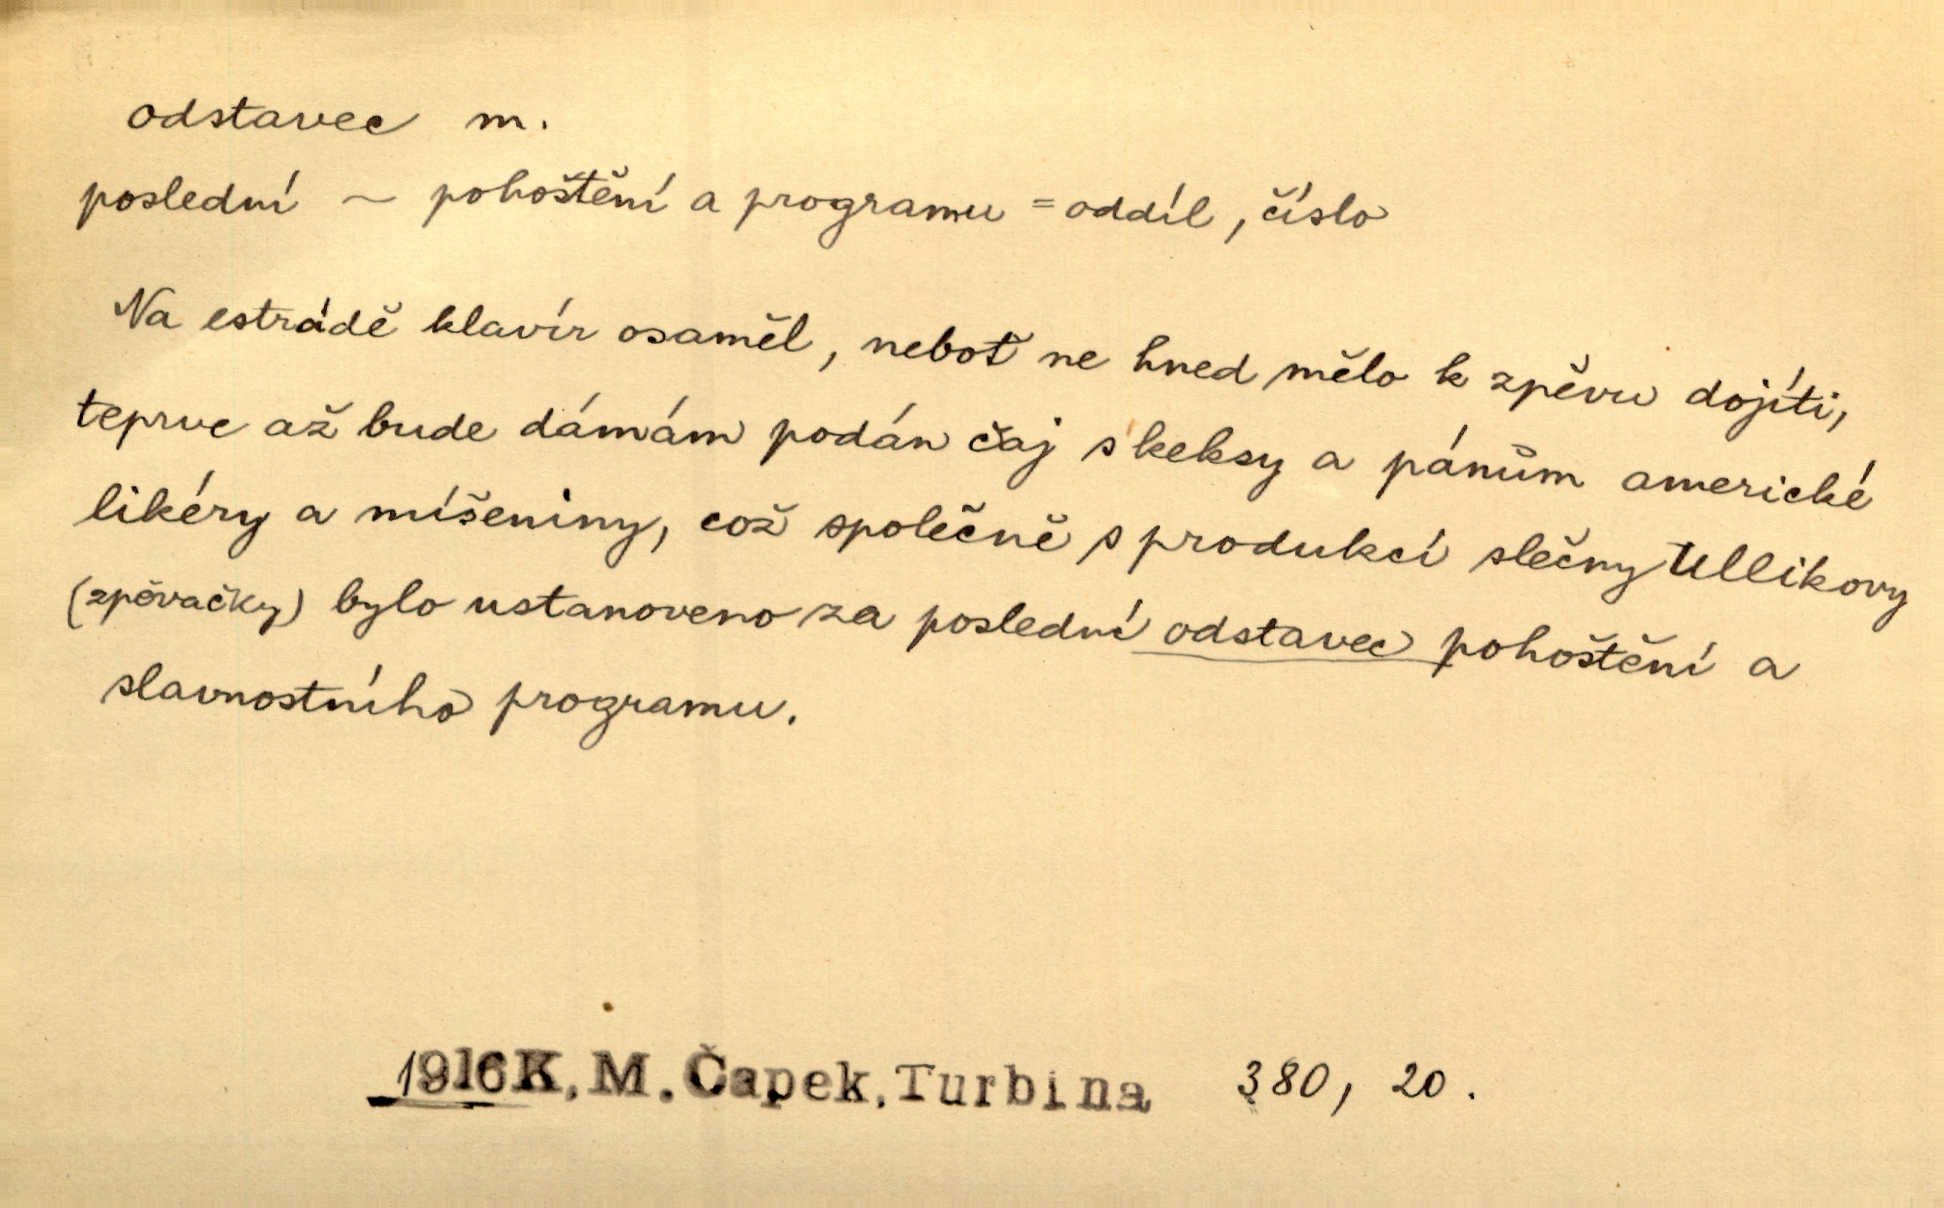 odstavec m.
poslední ~ pohoštění a programu = oddíl, číslo
Na estrádě klavír osaměl, neboť ne hned mělo k zpěvu dojíti,
teprve až bude dámám podán čaj s keksy a pánům americké
likéry a míšeniny, což společně s produkcí slečny Ullikovy
(zpěvačky) bylo ustanoveno za poslední odstavec pohoštění a
slavnostního programu.
1916 K. M. Čapek, Turbina 380, 20.